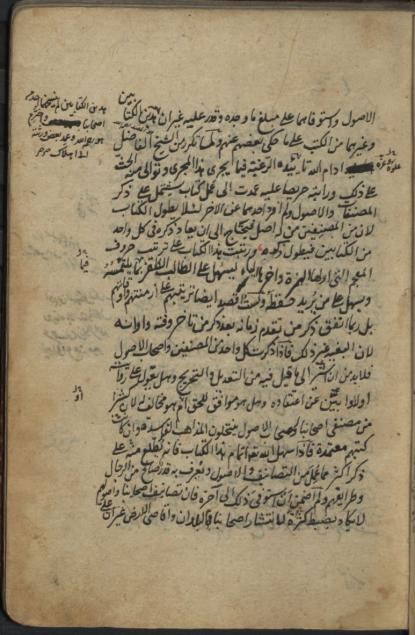 الاصول واستوفاهما على مبلغ ما وجده وقدر عليه غير ان هذين الكتابين
وغيرهما من الكتب على ما حكى بعضهم عنهم ولما تكرر من الشيخ الفاضل
ادام الله تاييده الرغبة فيما يجري هذا المجرى وتوالى منه الحث
على ذلك ورايته حريصا عليه عمدت الى عمل كتاب يشتمل على ذكر
المصنفات والاصول ولم افرد احدهما عن الاخر لئلا يطول الكتاب
لان من المصنفين من له اصل فيحتاج الى ان يعاد ذكره في كل واحد
من الكتابين فيطول ورتبت هذا الكتاب على ترتيب حروف
المعجم التي اولها الهمزة واخرها الياء ليسهل على الطالب الظفر بما يلتمسه
ويسهل على من يريد حفظه ولست اقصد ايضا ترتيبهم على ازمنتهم واوقاتهم
بل ربما اتفق ذكر من تقدم زمانه بعد ذكر من تاخر وقته واوانه
لان البغية غير ذلك فاذا ذكرت كل واحد من المصنفين واصحاب الاصول
فلا بد من ان اشير الى ما قيل فيه من التعديل والتجريح وهل يعول على روايته
اولا وابين عن اعتقاده وهل هو موافق للحق ام هو مخالف له لان كثيرا
من مصنفي اصحابنا واصحاب الاصول ينتحلون المذاهب الفاسدة وان كانت
كتبهم معتمدة فاذا سهل الله تعالى اتمام هذا الكتاب فانه يطلع منه على
ذكر اكثر ما عمل من التصانيف والاصول ويعرف به قدر صالح من الرجال
وطرايقهم ولم اضمن ان استوفي ذلك الى اخره فان تصانيف اصحابنا واصولهم
لا يكاد يضبط كثرة لانتشار اصحابنا في البلدان واقاصي الارض غير ان علي
هذين الكتابين لم ينسخهما احد من
اصحابنا واخترم
هو رحمه الله وعمد بعض ورثته
الى اهلاك